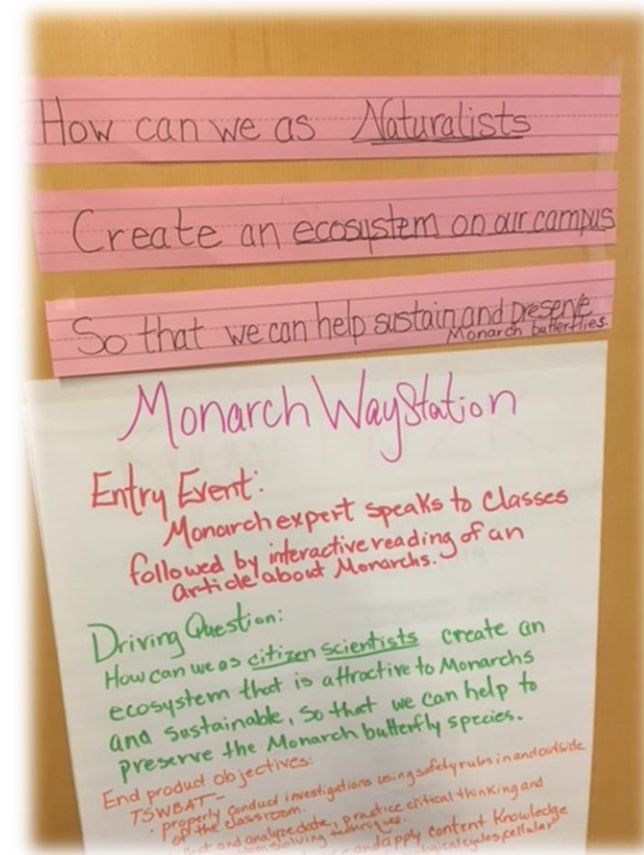 How can we as Naturalists
Create an ecosystem on our campus
So that we can help sustain and preserve
Monarch butterflies.
Monarch WayStation
Entry Event:
Monarch expert speaks to classes
followed by interactive reading of an
article about Monarchs.
Driving Question:
How can we as citizen scientists create an
ecosystem that is attractive to Monarchs
and sustainable, so that we can help to
preserve the Monarch butterfly species.
End product objectives:
TSWBAT-
· properly conduct investigations using safety rules in and outside
of the classroom.
and analyze data, practice critical thinking and
solving techniques.
and apply content Knowledge
cycles,